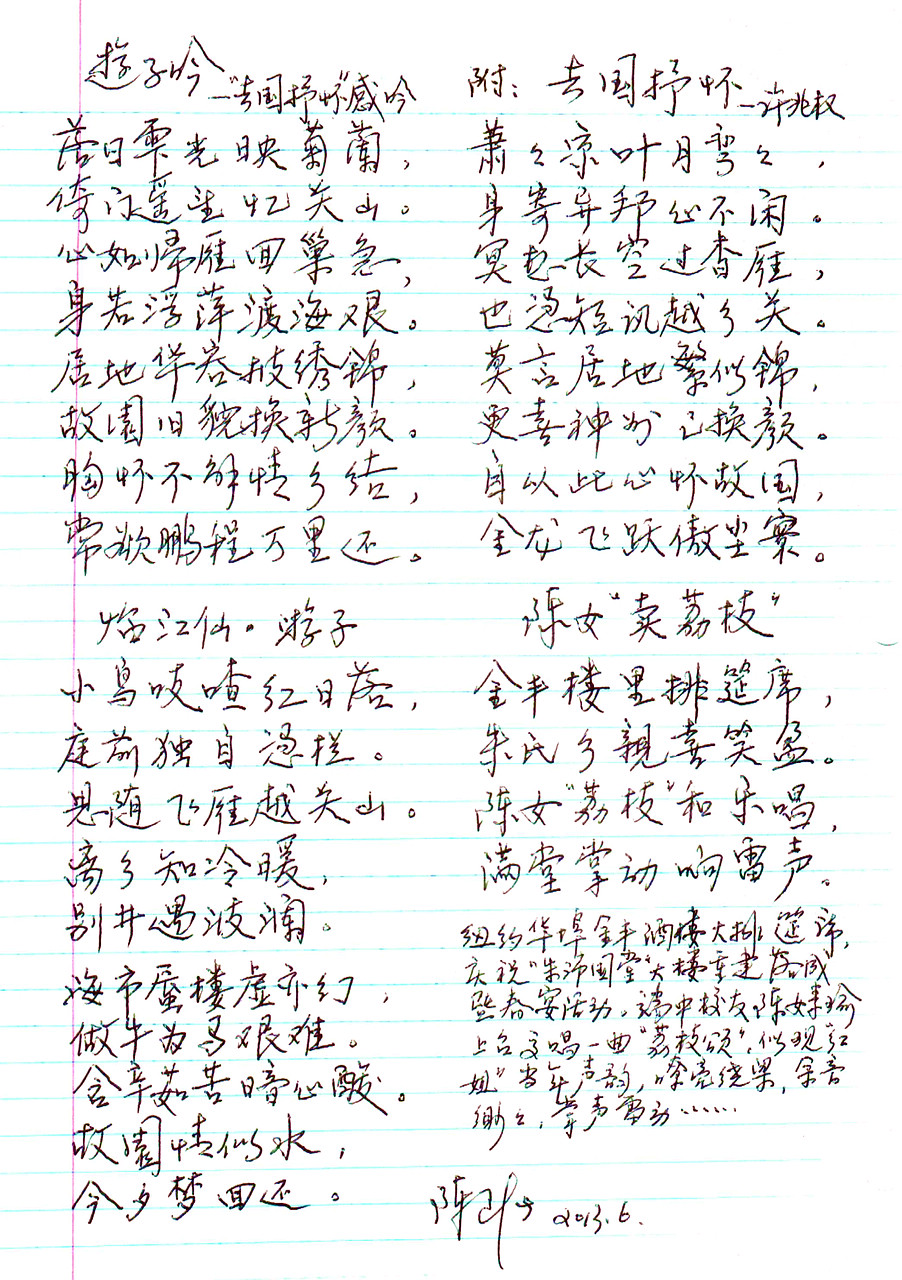 游子吟
—“去国抒怀”感吟
落日霞光映菊蘭，
倚门遥望忆关山。
心如归雁回巢急，
身若浮萍渡海艰。
居地华容披绣錦，
故園旧貌换新颜。
胸怀不解情乡结，
常欲鹏程万里还。
附：去国抒怀
—许兆权
萧々凉叶月弯々，
身寄异邦心不闲。
冥想长空过香雁，
也凭短讯越乡关。
莫言居地繁似錦，
更喜神州已换颜。
自从此心怀故国，
金龙飞跃傲尘寰。
临江仙。游子
小鸟吱喳红日落，
庭前独自凭栏。
思随飞雁越关山。
离乡知冷暖，
别井遇波澜。
海市蜃楼虚亦幻，
做牛为马艰难。
含辛茹苦暗心酸。
故園情似水，
今夕梦回还。
陈女“卖荔枝”
金丰楼里排筵席，
朱氏乡親喜笑盈。
陈女“荔枝”和乐唱，
满堂掌动响雷声。
纽约华埠金丰酒楼大排筵席，
庆祝“朱沛国堂”大楼重建落成
暨春宴活动。端中校友陈妹瑜
上台主唱一曲“荔枝颂”，似现红
姐”当年声韵，嘹亮绕梁，余音
缈々，掌声雷动……
陈 2013.6.